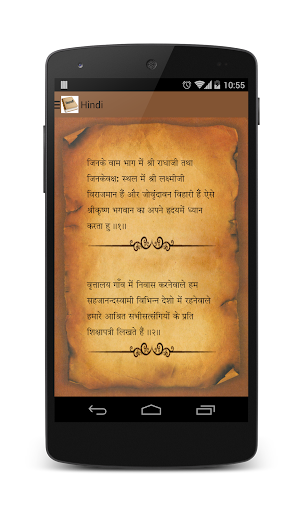 10:55
Hindi
जिनके वाम भाग में श्री राधाजी तथा
जिनकेवक्षः स्थल में श्री लक्ष्मीजी
विराजमान हैं और जोवृंदावन विहारी हैं ऐसे
श्रीकृष्ण भगवान का अपने हृदयमें ध्यान
करता हु ॥१॥
वृत्तालय गाँव में निवास करनेवाले हम
सहजानन्दस्वामी विभिन्न देशो में रहनेवाले
हमारे आश्रित सभीसत्संगियों के प्रति
शिक्षापत्री लिखते हैं ॥२॥